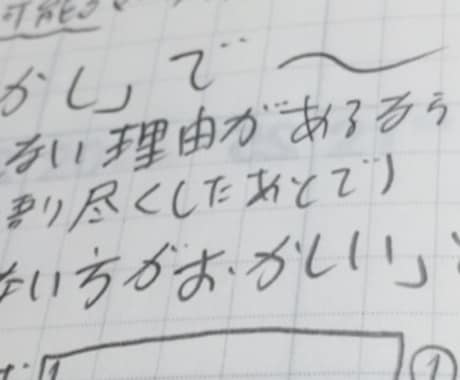 かし」で 〜
ない理由があるなら
割り尽くしたあとで
ない方がおかしい」
①